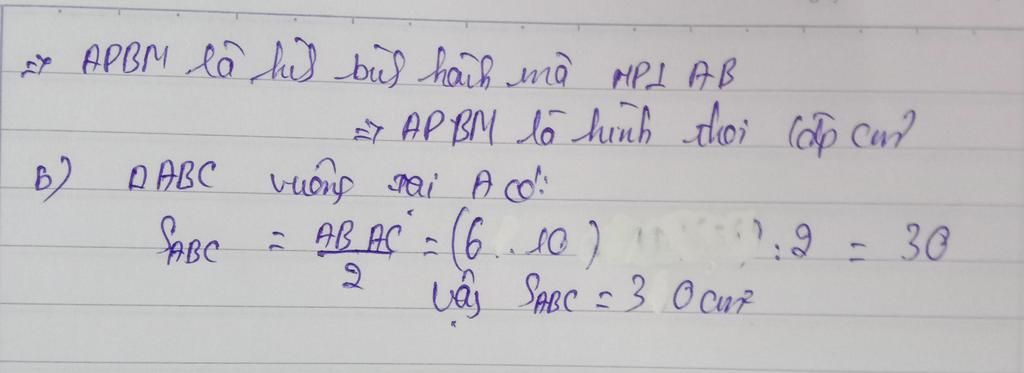 => APBM là hìn bìn hàih mà MP⊥ AB
=> APBM là hình thoi (đpcm)
b) ΔABC vuông tại A có:
S_ABC = AB.AC/2 = (6.10) :2 = 30
Vậy S_ABC = 30cm²